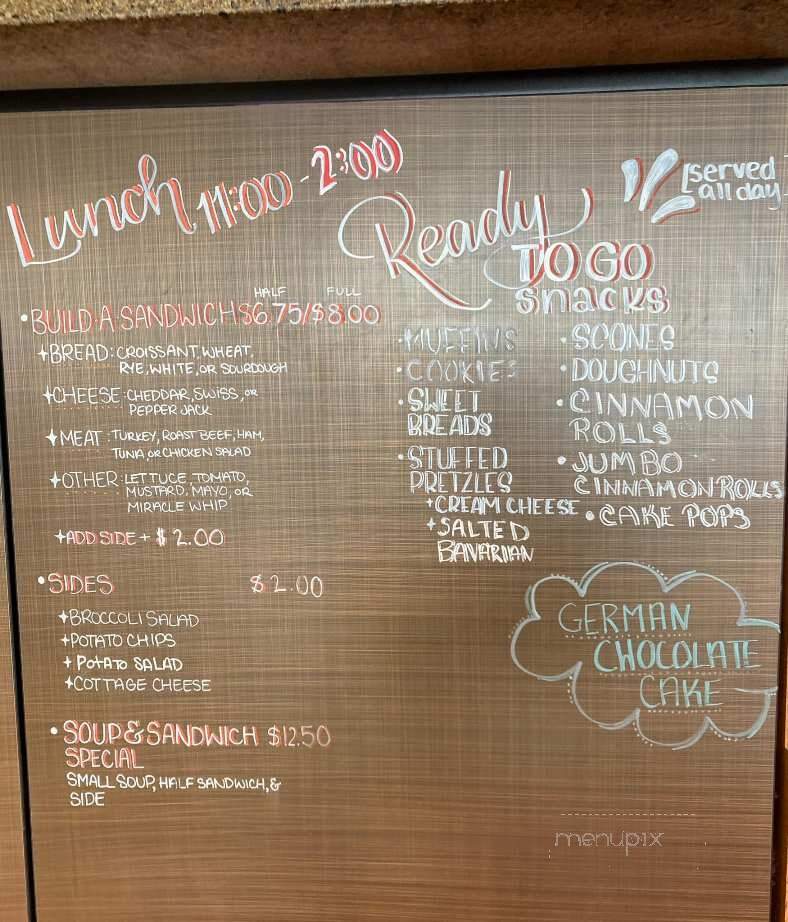 Lunch 11:00 - 2:00
HALF FULL
• BUILD-A-SANDWICH $6.75/$8.00
+BREAD: CROISSANT, WHEAT,
RYE, WHITE, OR SOURDOUGH
+CHEESE: CHEDDAR, SWISS, OR
PEPPER JACK
+MEAT: TURKEY, ROAST BEEF, HAM,
TUNA OR CHICKEN SALAD
+OTHER: LETTUCE, TOMATO,
MUSTARD, MAYO, OR
MIRACLE WHIP
+ADD SIDE + $2.00
• SIDES $2.00
+BROCCOLI SALAD
+POTATO CHIPS
+POTATO SALAD
+COTTAGE CHEESE
• SOUP & SANDWICH $12.50
SPECIAL
SMALL SOUP, HALF SANDWICH, &
SIDE
Ready
TO GO
snacks
served
all day
• MUFFINS
• COOKIES
• SWEET
BREADS
• STUFFED
PRETZLES
+CREAM CHEESE
+SALTED
BAVARIIAN
• SCONES
• DOUGHNUTS
• CINNAMON
ROLLS
• JUMBO
CINNAMON ROLLS
• CAKE POPS
GERMAN
CHOCOLATE
CAKE
menupix